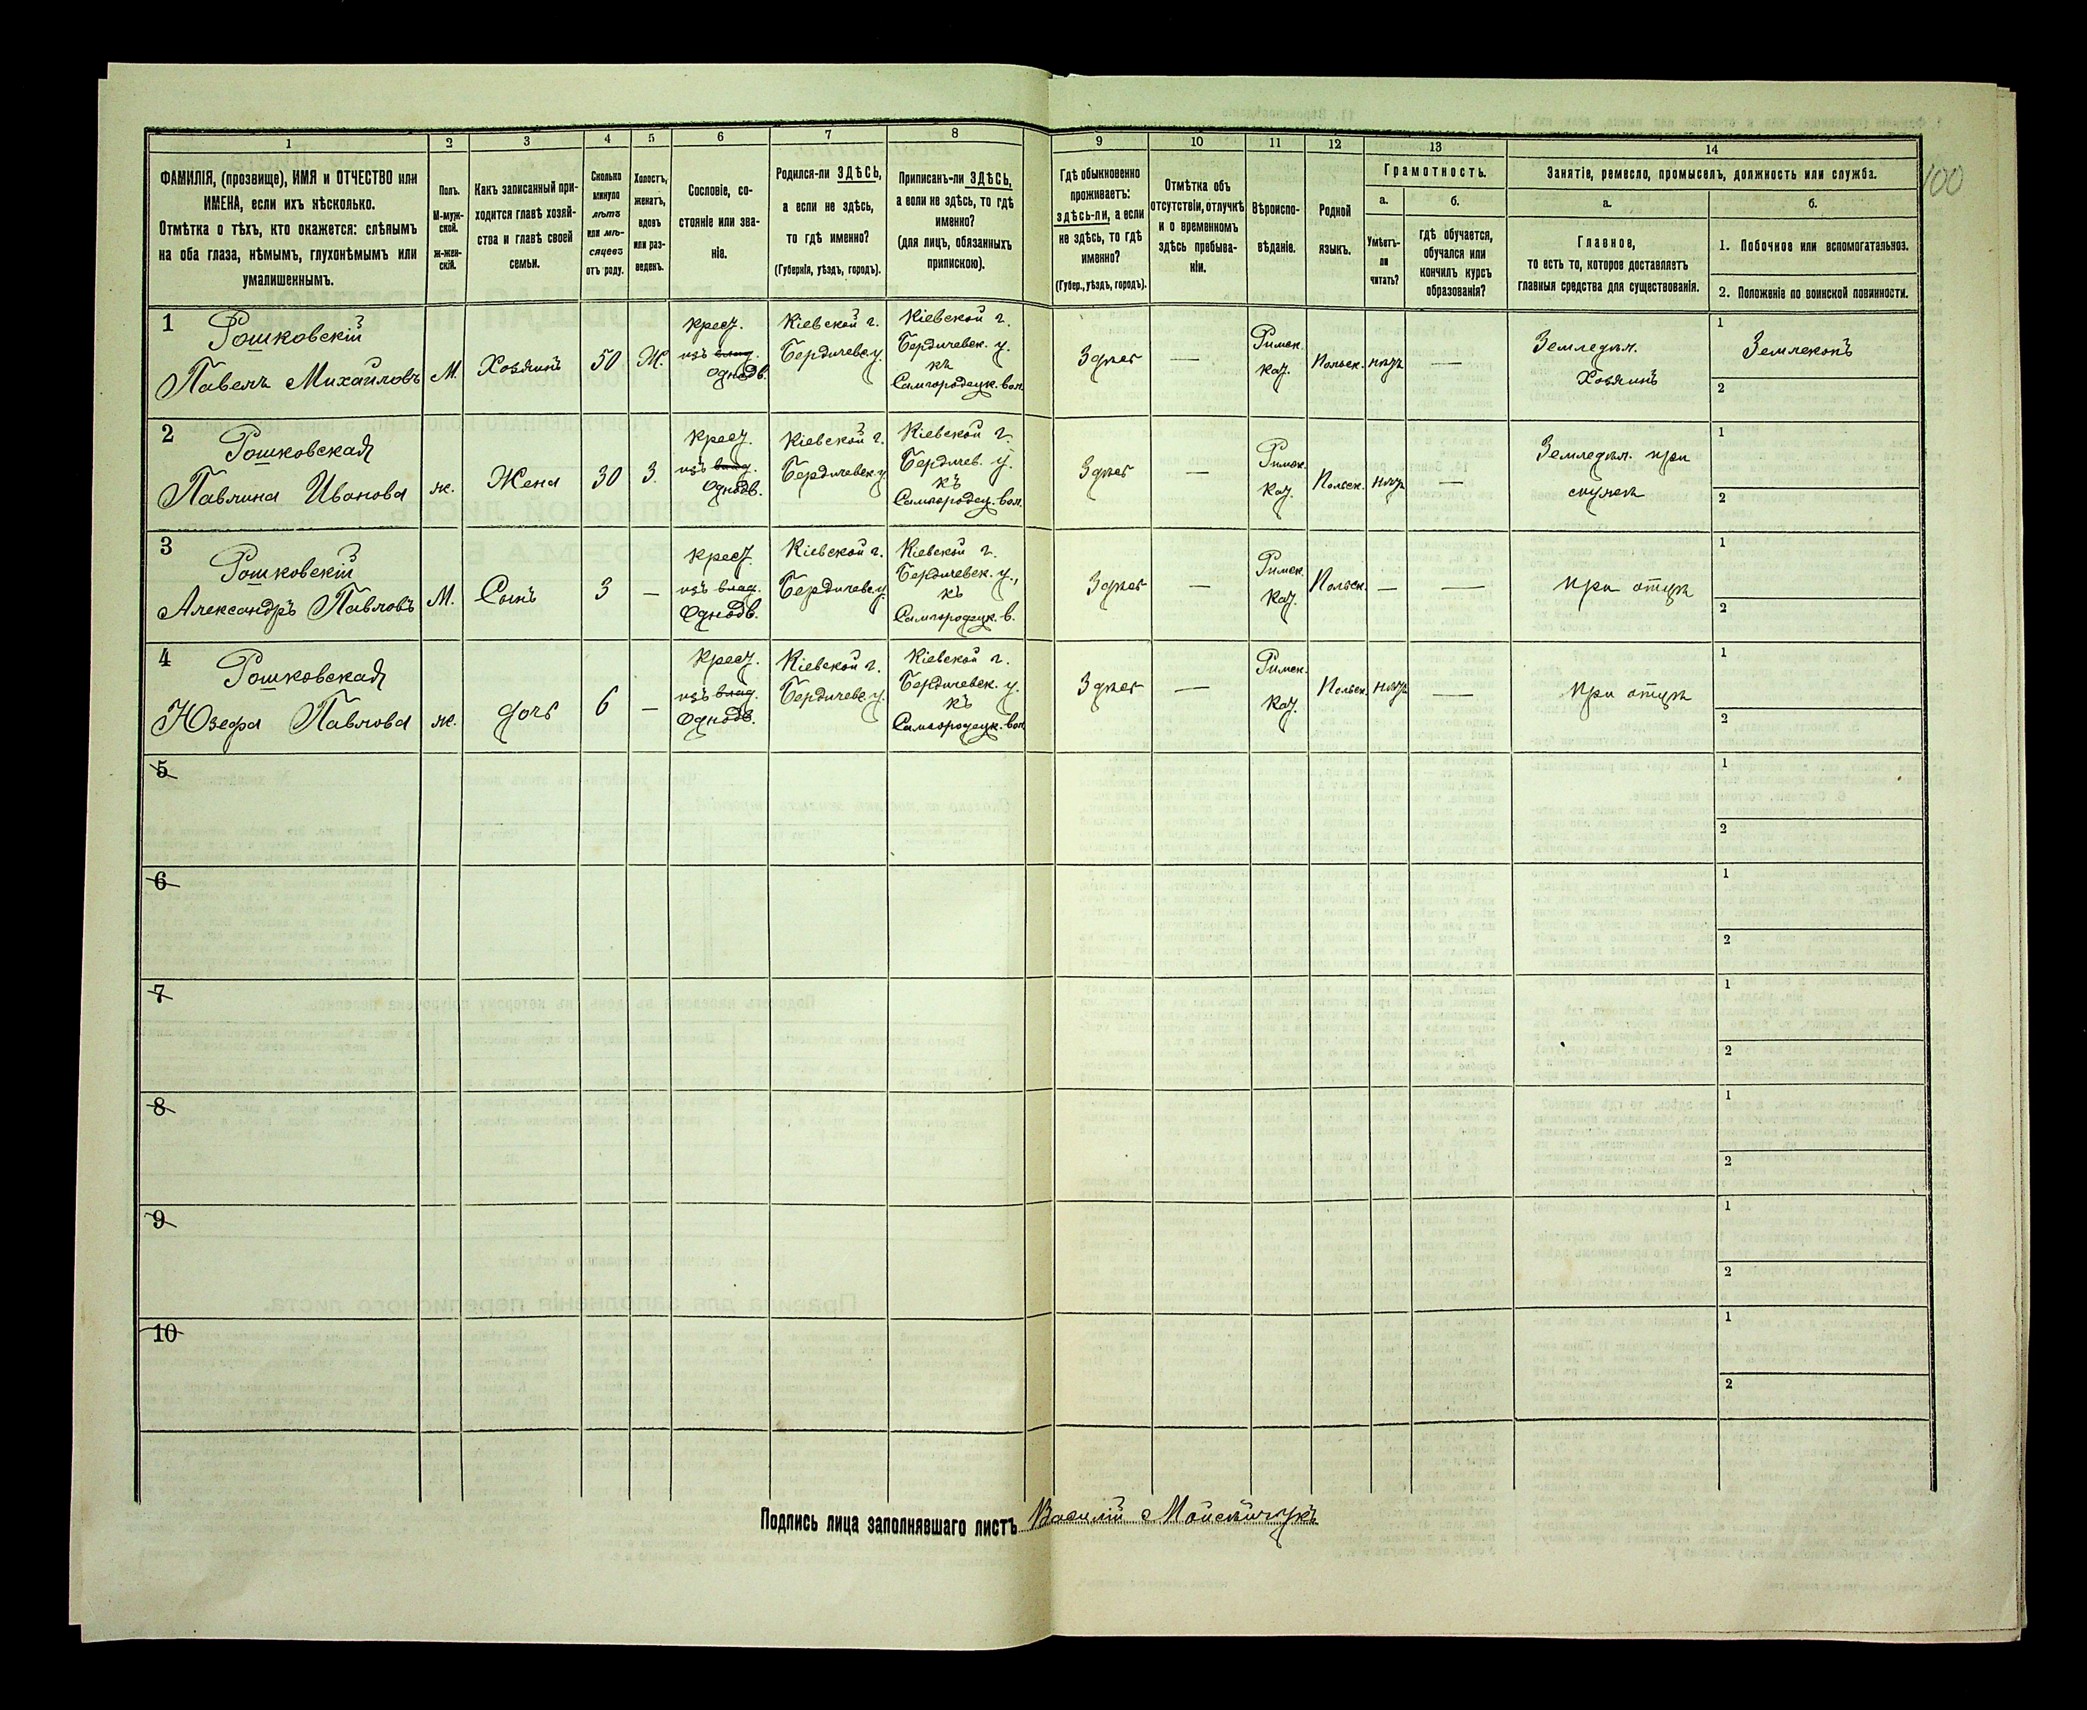 100
1 2 3 4 5 6 7 8 9 10 11 12 13 14
ФАМИЛІЯ, (прозвище), ИМЯ и ОТЧЕСТВО или
ИМЕНА, если ихъ нѣсколько.
Отмѣтка о тѣхъ, кто окажется: слѣпымъ
на оба глаза, нѣмымъ, глухонѣмымъ или
умалишеннымъ.
Полъ.
М-муж-
ской.
ж-жен-
скій.
Какъ записанный при-
ходится главѣ хозяй-
ства и главѣ своей
семьи.
Сколько
минуло
лѣтъ
или мѣ-
сяцевъ
отъ роду.
Холостъ,
женатъ,
вдовъ
или раз-
веденъ.
Сословіе, со-
стояніе или зва-
ніе.
Родился-ли ЗДѢСЬ,
а если не здѣсь,
то гдѣ именно?
(Губернія, уѣздъ, городъ).
Приписанъ-ли ЗДѢСЬ,
а если не здѣсь, то гдѣ
именно?
(для лицъ, обязанныхъ
припискою).
Гдѣ обыкновенно
проживаетъ:
здѣсь-ли, а если
не здѣсь, то гдѣ
именно?
(Губер., уѣздъ, городъ).
Отмѣтка объ
отсутствіи, отлучкѣ
и о временномъ
здѣсь пребыва-
ніи.
Вѣроиспо-
вѣданіе.
Родной
языкъ.
Грамотность.
а.
Умѣетъ-
ли
читать?
б.
гдѣ обучается,
обучался или
кончилъ курсъ
образованія?
Занятіе, ремесло, промыселъ, должность или служба.
а.
Главное,
то есть то, которое доставляетъ
главныя средства для существованія.
б.
1. Побочное или вспомогательное.
2. Положеніе по воинской повинности.
1
Рошковскій
Павелъ Михайловъ
М.
Хозяинъ
50
Ж.
Крест.
изъ влад.
Однодв.
Кіевской г.
Бердичевс. у.
Кіевской г.
Бердичевск. у.
къ
Самгородецк. вол.
Здѣсь
—
Римск.
Кат.
Польск.
нѣтъ
—
Земледѣл.
Хозяинъ
1
Землекопъ
2
2
Рошковская
Павлина Иванова
ж.
Жена
30
З.
Крест.
изъ влад.
Однодв.
Кіевской г.
Бердичевск. у.
Кіевской г.
Бердичев. у.
къ
Самгородец. вол.
Здѣсь
—
Римск.
Кат.
Польск.
нѣтъ
—
Земледѣл. при
1
2
3
Рошковскій
Александръ Павловъ
М.
Сынъ
3
—
Крест.
изъ влад.
Однодв.
Кіевской г.
Бердичевс. у.
Кіевской г.
Бердичевск. у.,
къ
Самгородецк. в.
Здѣсь
—
Римск.
Кат.
Польск.
—
—
При отцѣ
1
2
4
Рошковская
Юзефа Павлова
ж.
дочь
6
—
Крест.
изъ влад.
Однодв.
Кіевской г.
Бердичевс. у.
Кіевской г.
Бердичевск. у.
къ
Самгородецк. вол.
Здѣсь
—
Римск.
Кат.
Польск.
нѣтъ
—
При отцѣ
1
2
5
1
2
6
1
2
7
1
2
8
1
2
9
1
2
10
1
2
Подпись лица заполнявшаго листъ Василій